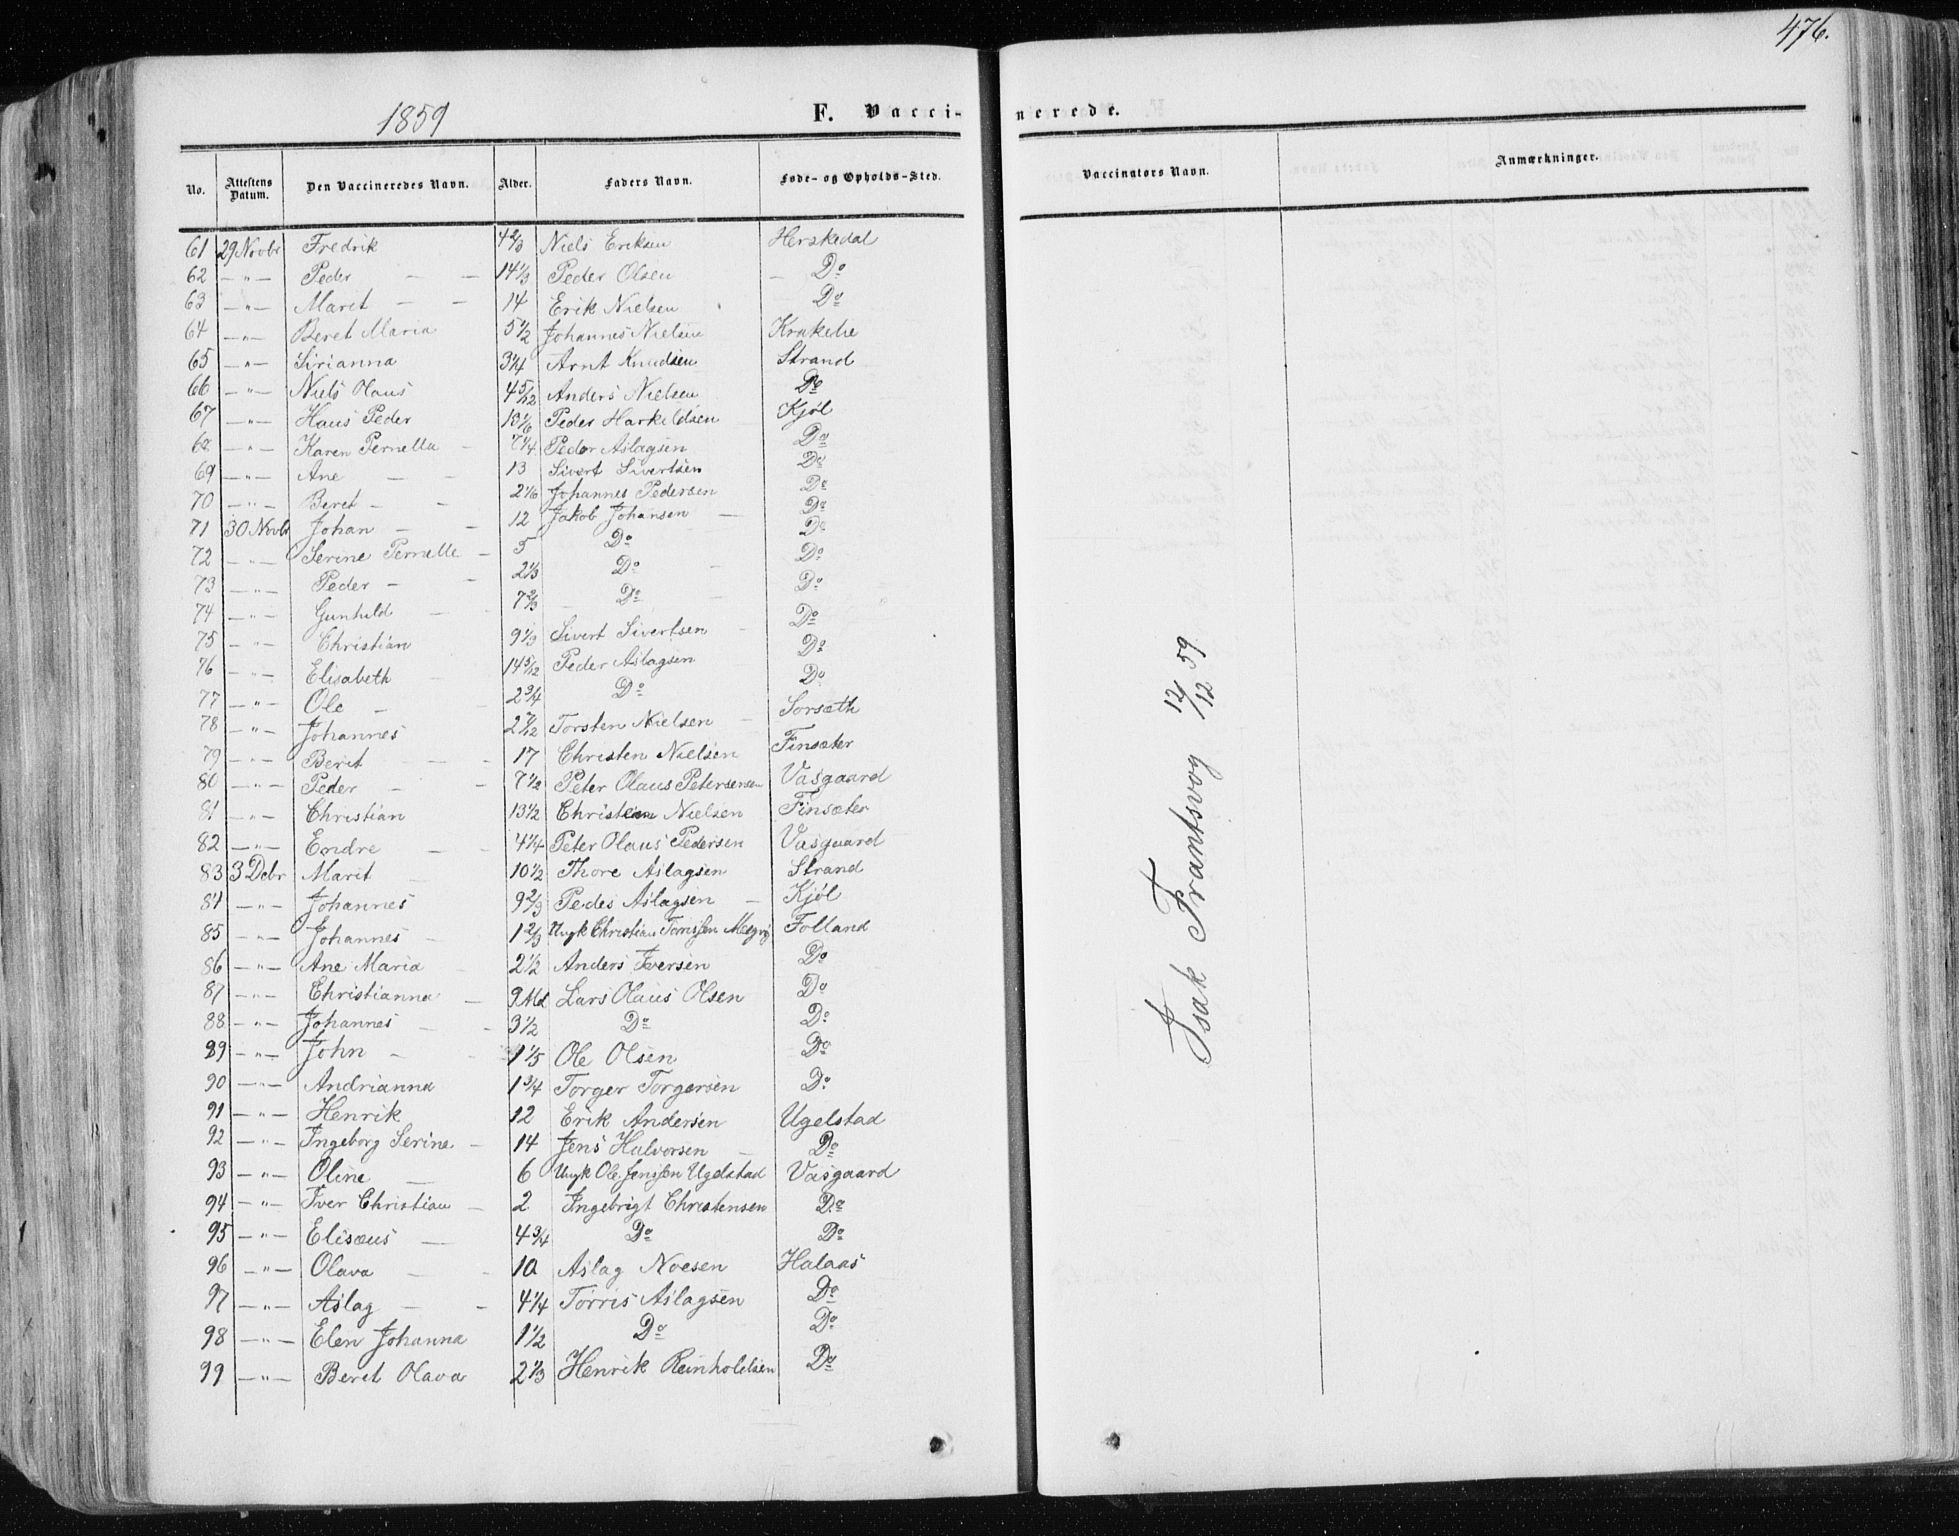 476.
1859
F. Vaccinerede.
No. Attestens Datum. Den Vaccineredes Navn. Alder. Faders Navn. Føde- og Opholds-Sted. Vaccinators Navn. Anmærkninger.
61 29 Novbr Fredrik 4 2/3 Niels Eriksen Herskedal
62 — " — Peder — — 14 1/3 Peder Olsen — Do
63 — " — Marit — — 14 Erik Nielsen Do
64 — " — Beret Maria 5 1/2 Johannes Nielsen Krakelie
65 — " — Sirianna 3 1/4 Arnt Knudsen Strand
66 — " — Niels Olaus 4 5/12 Anders Nielsen Do
67 — " — Hans Peder 13 1/6 Peder Harkeldsen Kjøl
68 — " — Karen Pernella — 7 1/4 Peder Aslagsen Do
69 — " — Ane — — 13 Sivert Sivertsen Do
70 — " — Beret — — 2 1/6 Johannes Pedersen Do
71 30 Novbr Johan — — 12 Jakob Johansen — Do
72 — " — Serine Pernelle — 5 Do Do
73 — " — Peder — — 2 1/3 Do — Do
74 — " — Gunhild — 7 2/3 — Do — Do
75 — " — Christian 9 1/3 Sivert Sivertsen — Do
76 — " — Elisabeth 14 5/12 Peder Aslagsen Do
77 — " — Ole — 2 3/4 Do Do
78 — " — Johannes 2 7/12 Torsten Nielsen — Sorsæth
79 — " — Berit — — 17 Christen Nielsen Finsæter
80 — " — Peder — — 7 1/2 Peter Olaus Petersen Vasgaard
81 — " — Christian 13 1/2 Christen Nielsen Finsæter
82 — " — Endre — — 4 1/4 Peter Olaus Pedersen Vasgaard
83 3 Decbr Marit — 10 1/2 Thore Aslagsen Strand
84 — " — Johannes 9 2/3 Peder Aslagsen — Kjøl
85 — " — Johannes — 1 2/3 Ungk Christian Torrissen Folland
86 — " — Ane Maria 2 1/2 Anders Iversen Do
87 — " — Christianna — 9 Md Lars Olaus Olsen Do
88 — " — Johannes — 3 1/2 Do Do
89 — " — John — 1 1/5 Ole Olsen Do
90 — " — Andrianna 1 3/4 Torger Torgersen Do
91 — " — Henrik 12 Erik Andersen Ugelstad
92 — " — Ingeborg Serine — 14 Jens Halvorsen — Do
93 — " — Oline — 6 Ungk Ole Jenssen Ugelstad Vasgaard
94 — " — Iver Christian — 2 Ingebrigt Christensen Do
95 — " — Elisæus — 4 3/4 Do Do
96 — " — Olava — — 10 Aslag Noesen Halaas
97 — " — Aslag — — 4 1/4 Torris Aslagsen Do
98 — " — Elen Johanna 1 1/2 Do Do
99 — " — Beret Olava 2 1/3 Henrik Reinholdsen Do
Isak Frantsvog 12/12 59